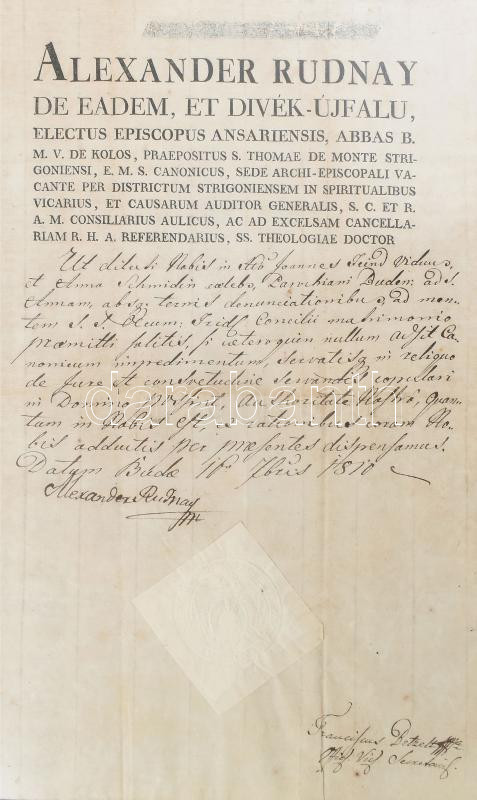 ALEXANDER RUDNAY
DE EADEM, ET DIVÉK-ÚJFALU,
ELECTUS EPISCOPUS ANSARIENSIS, ABBAS B.
M. V. DE KOLOS, PRAEPOSITUS S. THOMAE DE MONTE STRI-
GONIENSI, E. M. S. CANONICUS, SEDE ARCHI-EPISCOPALI VA-
CANTE PER DISTRICTUM STRIGONIENSEM IN SPIRITUALIBUS
VICARIUS, ET CAUSARUM AUDITOR GENERALIS, S. C. ET R.
A. M. CONSILIARIUS AULICUS, AC AD EXCELSAM CANCELLA-
RIAM R. H. A. REFERENDARIUS, SS. THEOLOGIAE DOCTOR
Ut dilecti Nobis in Joannes Viduus,
et Anna Schmidin caelebs, Parochiani Buden: ad S.
Annam, absq: ternis denunciationibus, ad men-
tem S. S. Oecum: Trid: Concilii matrimonio
praemitti solitis, si caeteroquin nullum adsit Ca-
nonicum impedimentum, servatisq in reliquo
de Jure et consvetudine servandis, copulari
in Domino possint, Authoritate Nostra, quan-
tum in Nobis est, ex rationibus coram No-
bis adductis per praesentes dispensamus.
Datum Budae 10a 1810
Alexander Rudnay
darabanth
Franciscus
Secretarius